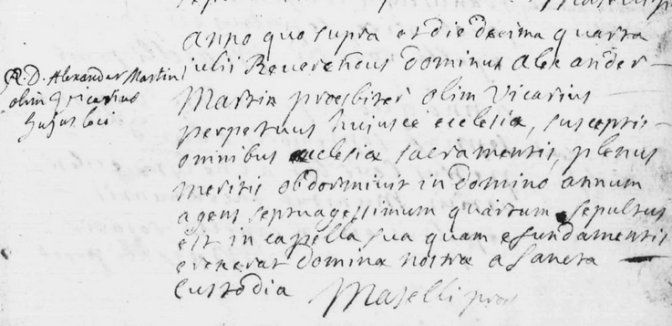 R. D. Alexander Martin
olim vicarius
hujus loci
anno quo supra et die decima quarta
iulii Reverendus dominus alexander
Martin presbiter olim Vicarius
perpetuus huiusce ecclesiæ, susceptis
omnibus ecclesiæ sacramentis, plenus
meritis obdormivit in domino annum
agens septuagessimum quartum sepultus
est in capella sua quam e fundamentis
erexerat dominæ nostræ a Sancta
Custodia Maselli